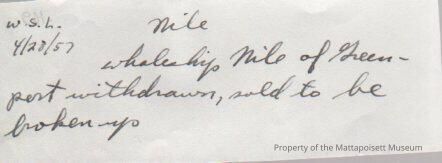 W.S.L. Nile
4/28/57
whaleship Nile of Green-
port withdrawn, sold to be
broken-up
Property of the Mattapoisett Museum